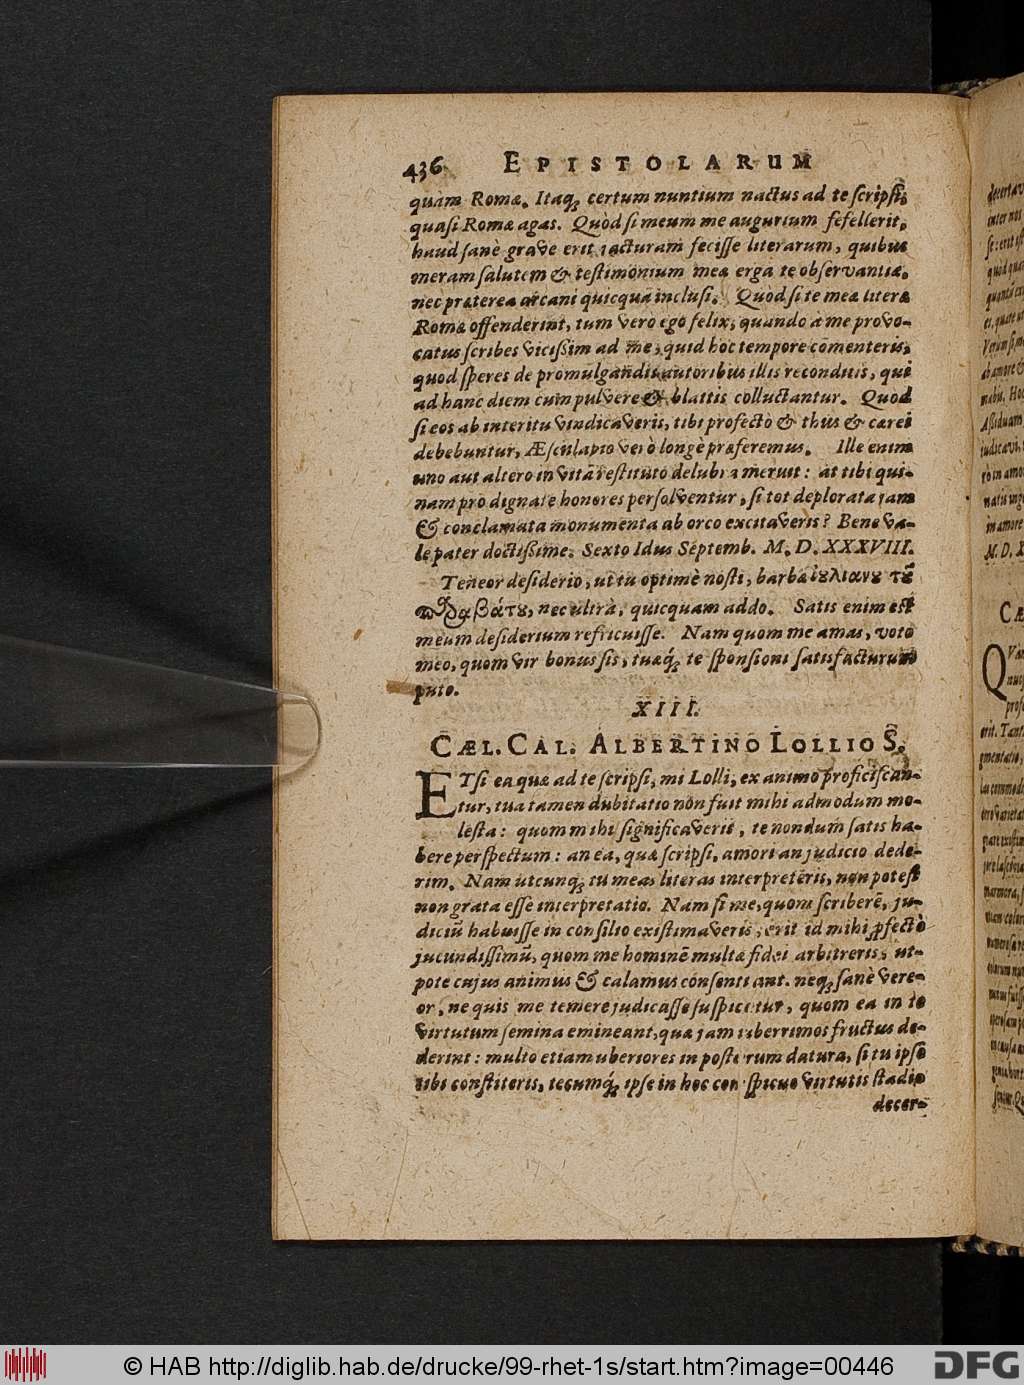 436 EPISTOLARUM
quam Romæ. Itaq; certum nuntium nactus ad te scripsi,
quasi Romæ agas. Quòd si meum me augurium fefellerit,
haud sanè grave erit jacturam fecisse literarum, quibus
meram salutem & testimonium meæ erga te observantiæ,
nec præterea arcani quicquā inclusi. Quòd si te meæ literæ
Romæ offenderint, tum verò ego felix, quando à me provo-
catus scribes vicißim ad me, quid hoc tempore cōmenteris,
quod speres de promulgandis autoribus illis reconditis, qui
ad hanc diem cum pulvere & blattis colluctantur. Quod
si eos ab interitu vindicaveris, tibi profectò & thus & carei
debebuntur, Æsculapio verò longè præferemus. Ille enim
uno aut altero in vitā restituto delubra meruit: at tibi qui-
nam pro dignate honores persolventur, si tot deplorata jam
& conclamata monumenta ab orco excitaveris? Bene va-
le pater doctißime. Sexto Idus Septemb. M. D. XXXVIII.
Teneor desiderio, ut tu optimè nosti, barba ἰουλιανοῦ τοῦ
nec ultrà, quicquam addo. Satis enim est
meum desiderium refricuisse. Nam quom me amas, voto
meo, quom vir bonus sis, tuæq́; te sponsioni satisfacturum
puto.
XIII.
CÆL. CAL. ALBERTINO LOLLIO S.
ETsi ea quæ ad te scripsi, mi Lolli, ex animo proficiscan-
tur, tua tamen dubitatio non fuit mihi admodum mo-
lesta: quom mihi significaveris, te nondum satis ha-
bere perspectum: an ea, quæ scripsi, amori an judicio dede-
rim. Nam utcunq; tu meas literas interpretēris, non potest
non grata esse interpretatio. Nam si me, quom scriberē, ju-
diciū habuisse in consilio existimaveris, erit id mihi ꝓfectò
jucundissimū, quom me hominē multæ fidei arbitreris, ut-
pote cujus animus & calamus consentiant. neq; sanè vere-
or, ne quis me temere judicasse suspicetur, quom ea in te
virtutum semina emineant, quæ jam uberrimos fructus de-
derint: multo etiam uberiores in posterum datura, si tu ipse
tibi constiteris, tecumq́; ipse in hoc conspicuo virtutis stadio
decer-
© HAB http://diglib.hab.de/drucke/99-rhet-1s/start.htm?image=00446
DFG